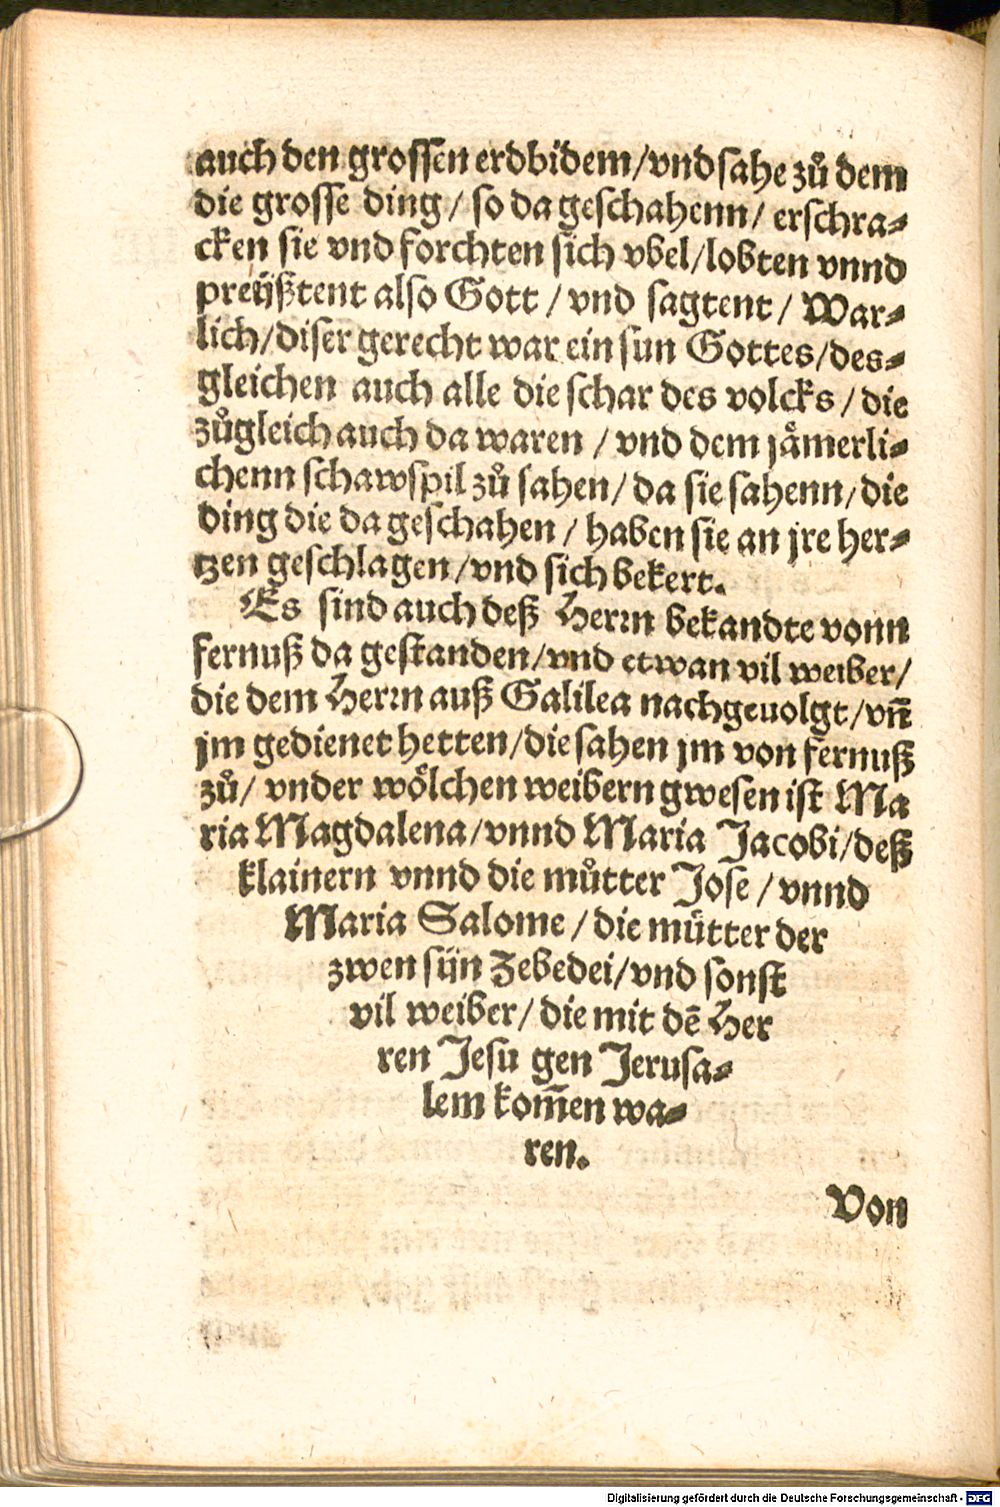 auch den grossen erdbidem/vnd sahe zů dem
die grosse ding/ so da geschahenn/ erschra⸗
cken sie vnd forchten sich vbel/lobten vnnd
preÿßtent also Gott / vnd sagtent/ War⸗
lich/diser gerecht war ein sun Gottes/des⸗
gleichen auch alle die schar des volcks / die
zůgleich auch da waren / vnd dem jåmerli⸗
chenn schawspil zů sahen/ da sie sahenn/ die
ding die da geschahen / haben sie an jre her⸗
tzen geschlagen /vnd sich bekert.
Es sind auch deß Herrn bekandte vonn
fernuß da gestanden/vnd etwan vil weiber/
die dem Herrn auß Galilea nachgeuolgt/vn̄
jm gedienet hetten/die sahen jm von fernuß
zů/ vnder wőlchen weibern gwesen ist Ma
ria Magdalena/vnnd Maria Jacobi/deß
klainern vnnd die můtter Jose / vnnd
Maria Salome / die mütter der
zwen sün Zebedei/vnd sonst
vil weiber/ die mit dē Her
ren Jesu gen Jerusa⸗
lem kom̄en wa⸗
ren.
Von
Digitalisierung gefördert durch die Deutsche Forschungsgemeinschaft - DFG